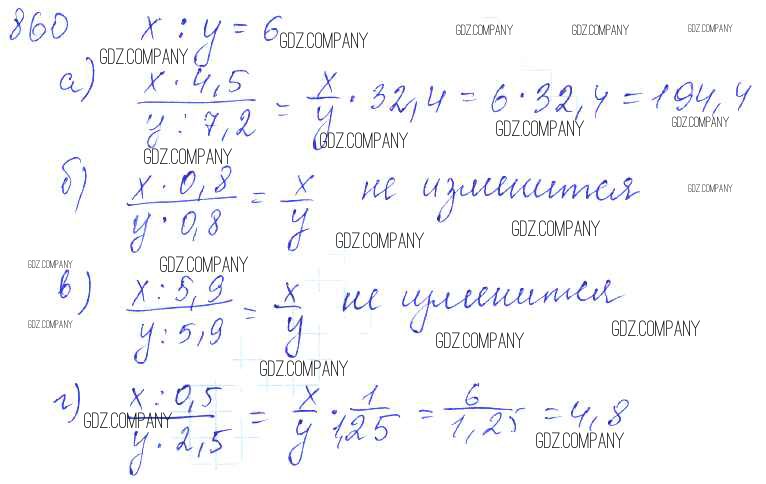 860 x : y = 6
GDZ.COMPANY GDZ.COMPANY GDZ.COMPANY GDZ.COMPANY
GDZ.COMPANY
а) x · 4,5 / y : 7,2 = x/y · 32,4 = 6 · 32,4 = 194,4
GDZ.COMPANY GDZ.COMPANY GDZ.COMPANY
GDZ.COMPANY
б) x · 0,8 / y · 0,8 = x/y не изменится
GDZ.COMPANY
GDZ.COMPANY GDZ.COMPANY
GDZ.COMPANY GDZ.COMPANY
в) x : 5,9 / y : 5,9 = x/y не изменится
GDZ.COMPANY GDZ.COMPANY GDZ.COMPANY
GDZ.COMPANY
г) x : 0,5 / y · 2,5 = x/y · 1/1,25 = 6/1,25 = 4,8
GDZ.COMPANY GDZ.COMPANY